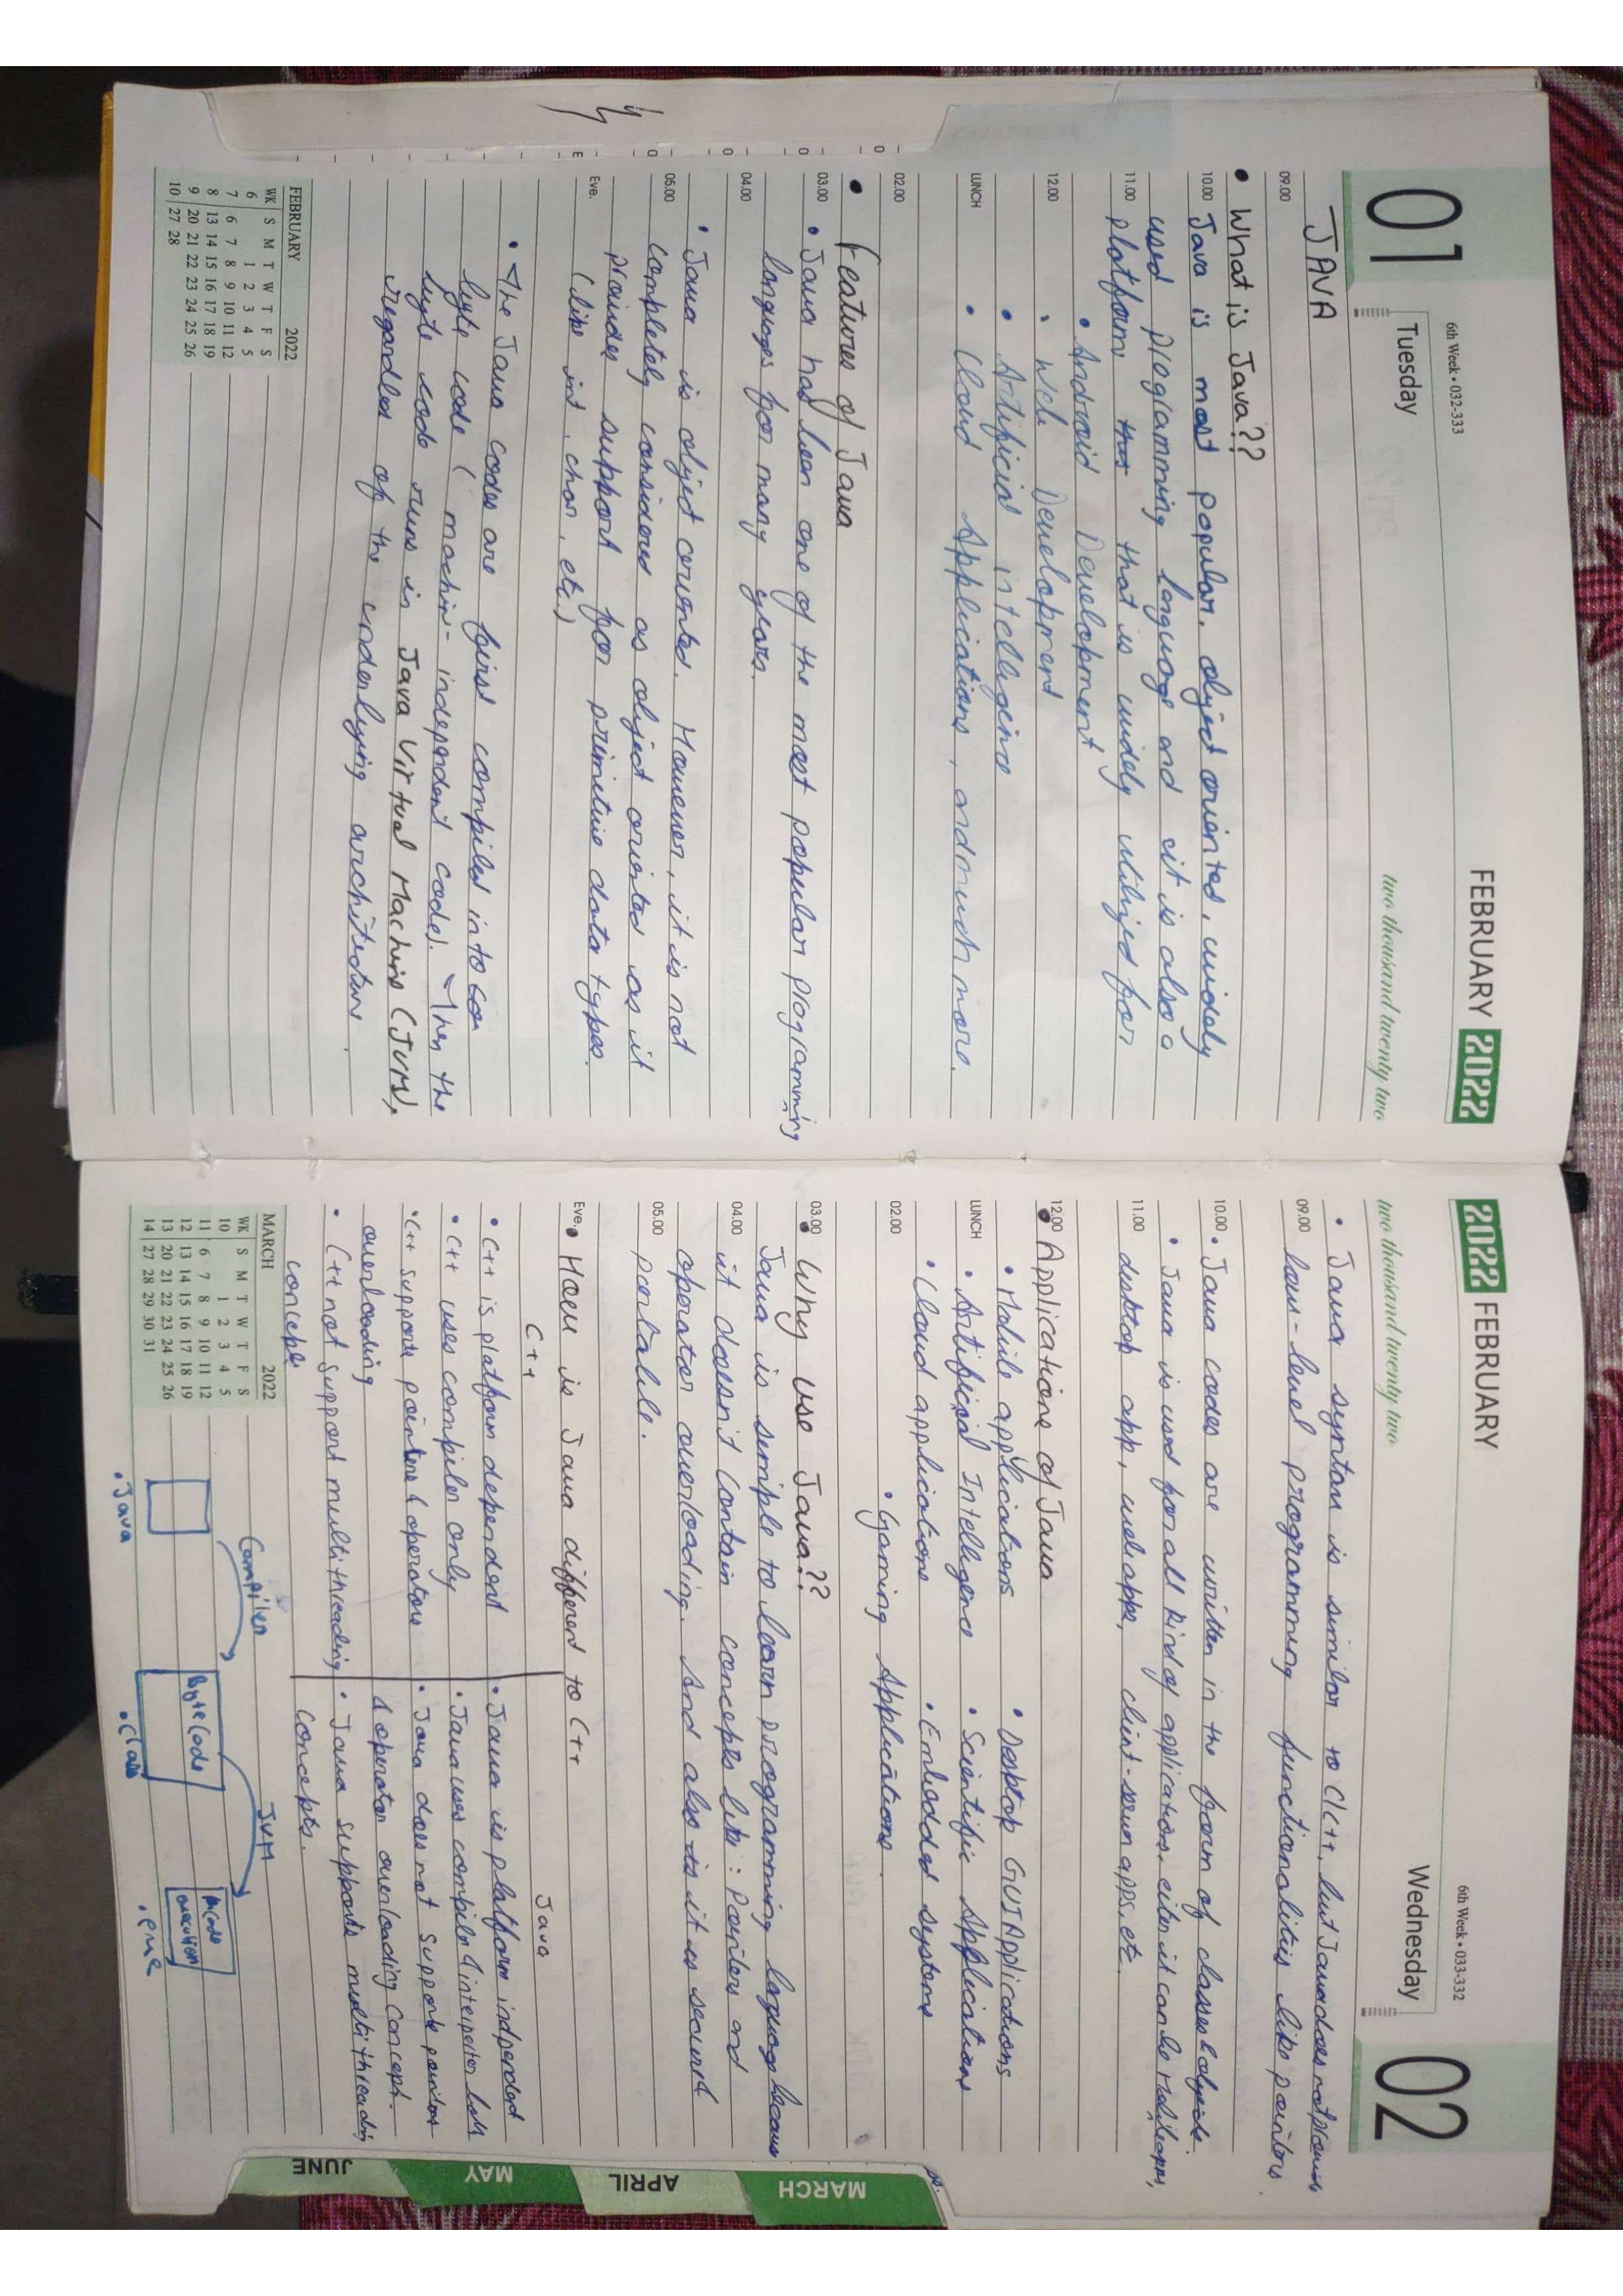 FEBRUARY 2022
01
6th Week • 032-333
Tuesday
two thousand twenty two
JAVA
09.00
• What is Java??
10.00 Java is most popular, object oriented, widely
used programming language and it is also a
11.00 platform that is widely utilized for
• Android Development
12.00 • Web Development
• Artificial intelligence
LUNCH • Cloud Applications, and much more.
02.00
• Features of Java
03.00 • Java has been one of the most popular programming
languages for many years.
04.00
• Java is object oriented. However, it is not
05.00 completely considered as object oriented as it
provides support for primitive data types.
Eve. (like int, char, etc.)
• The Java codes are first compiled into co
byte code (machin- independent code). Then the
byte code runs in Java Virtual Machine (JVM),
regardless of the underlying architecture.
FEBRUARY 2022
WK S M T W T F S
6 1 2 3 4 5
7 6 7 8 9 10 11 12
8 13 14 15 16 17 18 19
9 20 21 22 23 24 25 26
10 27 28
2022 FEBRUARY
6th Week • 033-332
Wednesday
02
two thousand twenty two
• Java syntax is similar to C/C++, but Java does not provide
09.00 low-level programming functionalities like pointers.
10.00 • Java codes are written in the form of classes & objects.
• Java is used for all kind of applications, eiter it can be Mobile apps,
11.00 desktop app, web apps, client-server apps, etc.
12.00 • Applications of Java
• Mobile applications • Desktop GUI Applications
LUNCH • Artificial Intelligence • Scientific Applications
• Cloud applications • Embedded systems
02.00 • Gaming Applications.
03.00 • Why use Java??
Java is simple to learn programming language because
04.00 it doesn't contain concepts like : Pointers and
operator overloading. And also is it is secured
05.00 portable.
Eve. • How is Java different to C++
C++ Java
• C++ is platform dependent • Java is platform indpendent
• C++ uses compiler only • Java uses compiler & interperter both
• C++ supports pointers & operators • Java does not supports pointers
overloading & operator overloading concept.
• C++ not support multithreading • Java supports multithreading
concepts concepts.
MARCH 2022
WK S M T W T F S
10 1 2 3 4 5
11 6 7 8 9 10 11 12
12 13 14 15 16 17 18 19
13 20 21 22 23 24 25 26
14 27 28 29 30 31
Compiler JVM
Byte Code
execution
.Java .Class .exe
MARCH
APRIL
MAY
JUNE